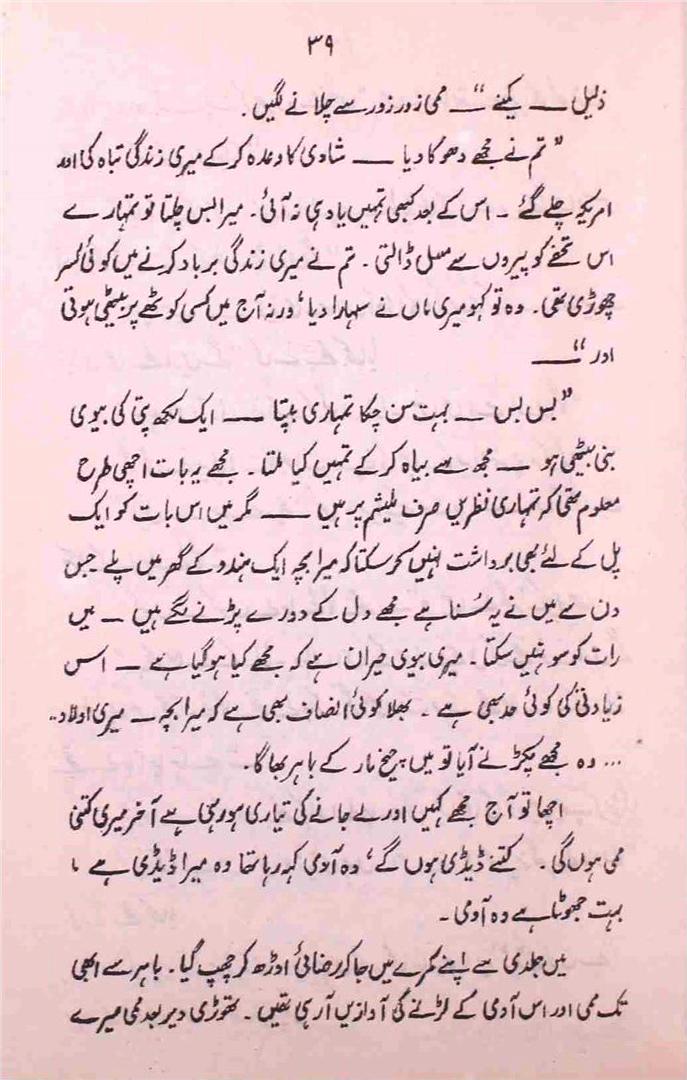 ۳۹
ذلیل ــــ کمینے “ــ ممی زور زور سے چلانے لگیں۔
”تم نے مجھے دھوکا دیا ــــ شادی کا وعدہ کر کے میری زندگی تباہ کی اور
امریکہ چلے گئے ۔ اس کے بعد کبھی تمہیں یاد ہی نہ آئی۔ میرا بس چلتا تو تمہارے
اس تحفے کو پیروں سے مسل ڈالتی۔ تم نے میری زندگی برباد کرنے میں کوئی کسر
چھوڑی تھی۔ وہ تو کہو میری ماں نے سہارا دیا، ورنہ آج میں کسی کوٹھے پر بیٹھی ہوتی
اور “ ــــ
”بس بس ــ بہت سن چکا تمہاری بپتا ــــ ایک لکھ پتی کی بیوی
بنی بیٹھی ہو ــــ مجھ سے بیاہ کر کے تمہیں کیا ملتا۔ مجھے یہ بات اچھی طرح
معلوم تھی کہ تمہاری نظریں صرف ملیشم پر ہیں ــــ مگر میں اس بات کو ایک
پل کے لئے بھی برداشت نہیں کر سکتا کہ میرا بچہ ایک ہندو کے گھر میں پلے جس
دن سے میں نے یہ سُنا ہے مجھے دل کے دورے پڑنے لگے ہیں ــ میں
رات کو سو نہیں سکتا۔ میری بیوی حیران ہے کہ مجھے کیا ہو گیا ہے ــ اس
زیادتی کی کوئی حد بھی ہے ۔ بھلا کوئی انصاف بھی ہے کہ میرا بچہ ــ میری اولاد..
... وہ مجھے پکڑنے آیا تو میں چیخ مار کے باہر بھاگا۔
اچھا تو آج مجھے کہیں اور لے جانے کی تیاری ہو رہی ہے آخر میری کتنی
ممی ہوں گی۔ کتنے ڈیڈی ہوں گے، وہ آدمی کہہ رہا تھا وہ میرا ڈیڈی ہے ۔
بہت جھوٹا ہے وہ آدمی ۔
میں جلدی سے اپنے کمرے میں جا کر رضائی اوڑھ کر چھپ گیا۔ باہر سے ابھی
تک ممی اور اس آدمی کے لڑنے کی آوازیں آرہی تھیں۔ تھوڑی دیر بعد ممی میرے